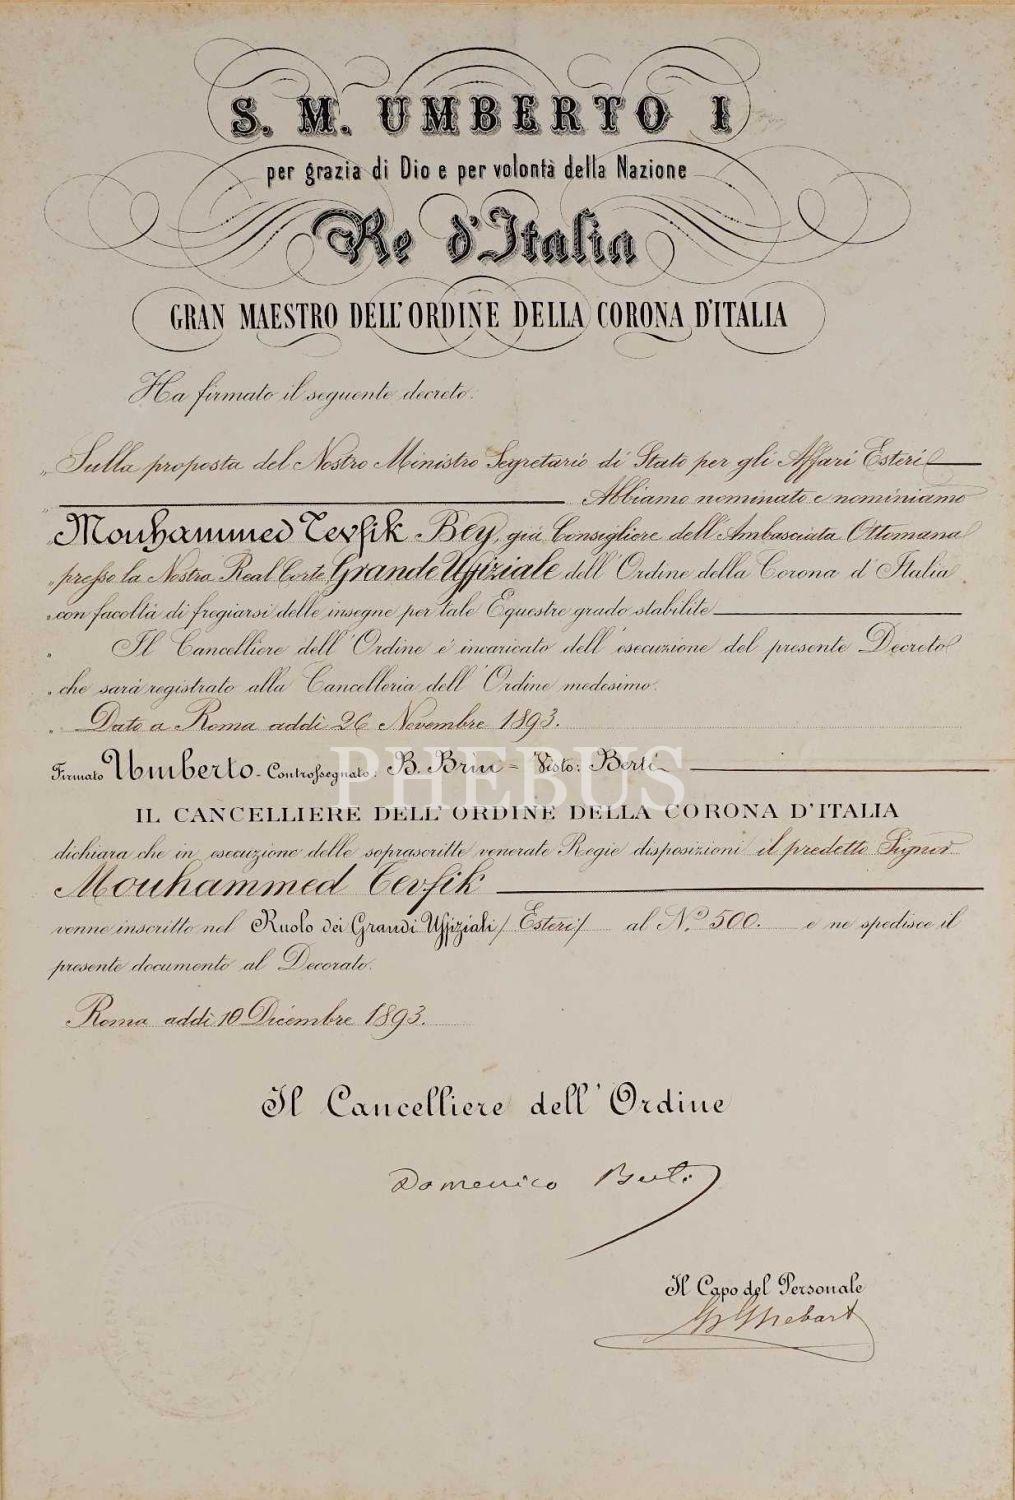 S. M. UMBERTO I
per grazia di Dio e per volontà della Nazione
Re d'Italia
GRAN MAESTRO DELL'ORDINE DELLA CORONA D'ITALIA
Ha firmato il seguente decreto:
„ Sulla proposta del Nostro Ministro Segretario di Stato per gli Affari Esteri
„ Abbiamo nominato e nominiamo
Mouhammed Tevfik Bey, già Consigliere dell'Ambasciata Ottomana
„ presso la Nostra Real Corte Grande Uffiziale dell'Ordine della Corona d'Italia
„ con facoltà di fregiarsi delle insegne per tale Equestre grado stabilite
„ Il Cancelliere dell'Ordine è incaricato dell'esecuzione del presente Decreto
„ che sarà registrato alla Cancelleria dell'Ordine medesimo.
„ Dato a Roma addì 26 Novembre 1893.
Firmato Umberto - Controssegnato: B. Brin = Visto: Berti
PHEBUS
IL CANCELLIERE DELL'ORDINE DELLA CORONA D'ITALIA
dichiara che in esecuzione delle soprascritte venerate Regie disposizioni il predetto Signor
Mouhammed Tevfik
venne inscritto nel Ruolo dei Grandi Uffiziali (Esteri) al N.º 500. e ne spedisce il
presente documento al Decorato.
Roma addì 10 Dicembre 1893.
Il Cancelliere dell'Ordine
Domenico Berti
Il Capo del Personale